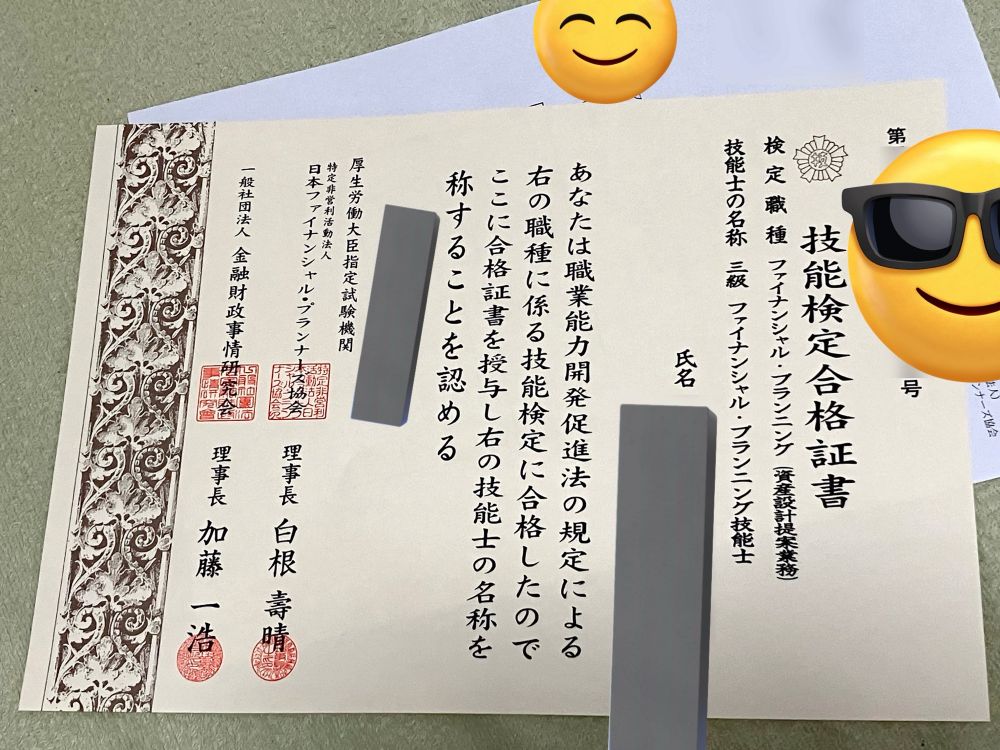 第
号
技能検定合格証書
検定職種 ファイナンシャル・プランニング（資産設計提案業務）
技能士の名称 三級 ファイナンシャル・プランニング技能士
氏名
あなたは職業能力開発促進法の規定による
右の職種に係る技能検定に合格したので
ここに合格証書を授与し右の技能士の名称を
称することを認める
厚生労働大臣指定試験機関
特定非営利活動法人
日本ファイナンシャル・プランナーズ協会 理事長 白根 壽晴
一般社団法人 金融財政事情研究会 理事長 加藤 一浩
ンナーズ協会